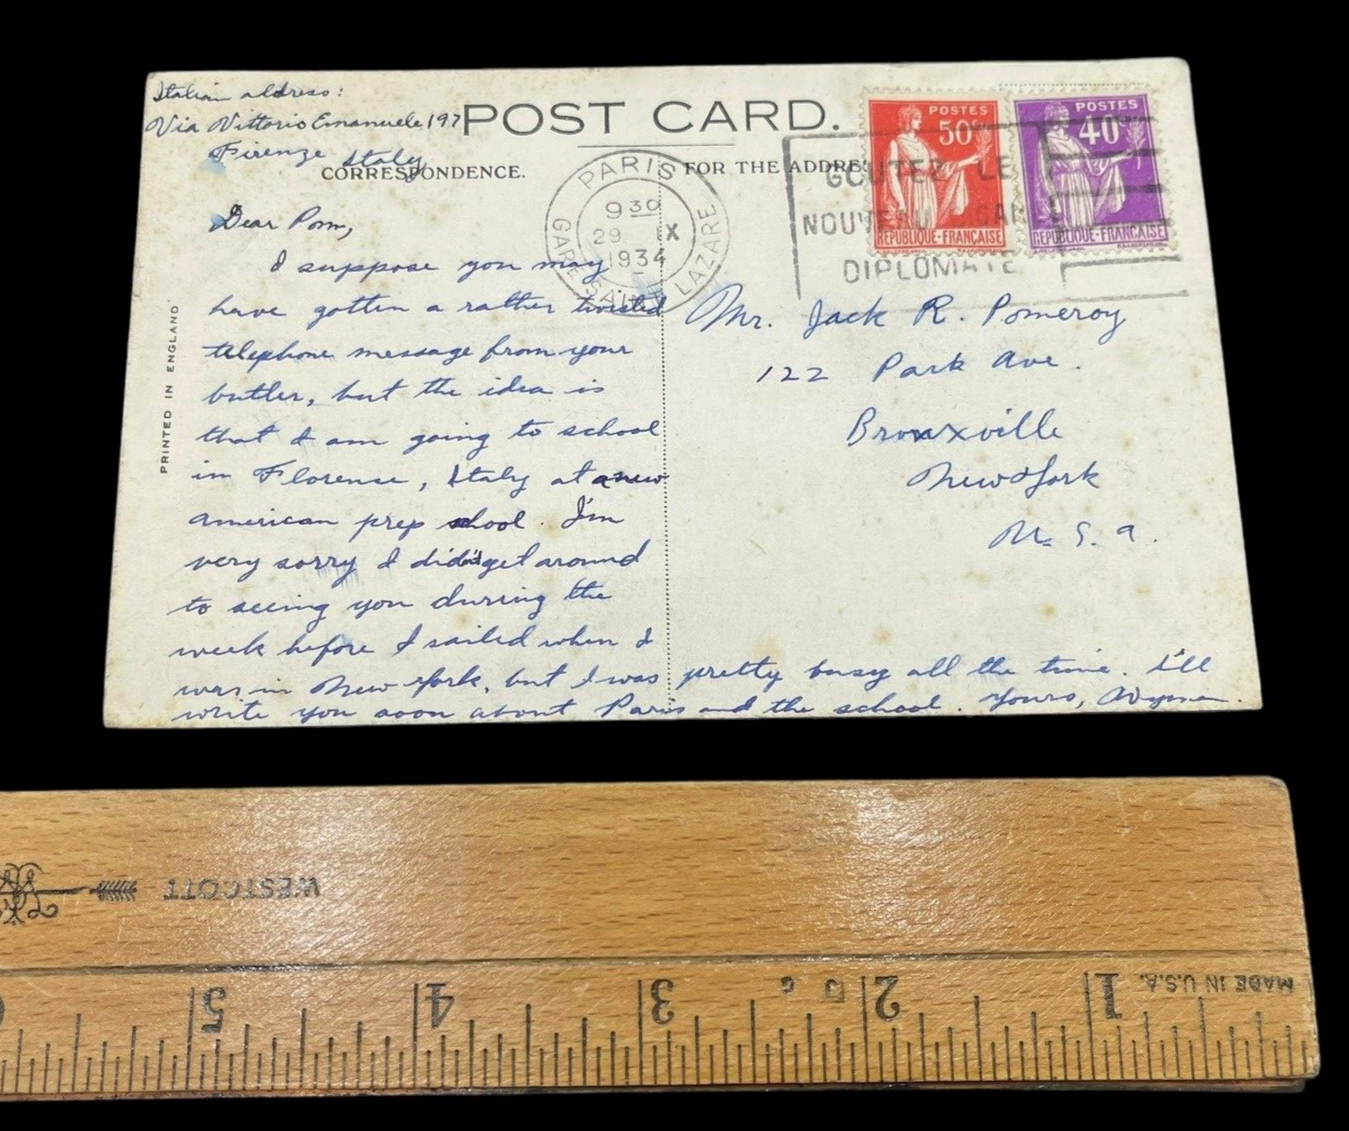 Italian address:
Via Vittorio Emanuele 197
Firenze Italy
POST CARD.
CORRESPONDENCE.
FOR THE ADDRE
PARIS
9 30
29 IX
1934
GARE SAINT LAZARE
GOUTEZ LE
NOUVEAU
DIPLOMATE
POSTES
50c
REPUBLIQUE-FRANÇAISE
POSTES
40c
REPUBLIQUE-FRANÇAISE
PRINTED IN ENGLAND
Dear Pom,
I suppose you may
have gotten a rather twisted
telephone message from your
butler, but the idea is
that I am going to school
in Florence, Italy at a new
american prep school. I'm
very sorry I didn't get around
to seeing you durring the
week before I sailed when I
was in New York, but I was pretty busy all the time. I'll
write you soon about Paris and the school. Yours, Wyman.
Mr. Jack R. Pomeroy
122 Park Ave.
Bronxville
New York
U. S. A.
WESTCOTT
MADE IN U.S.A.
5 4 3 2 1